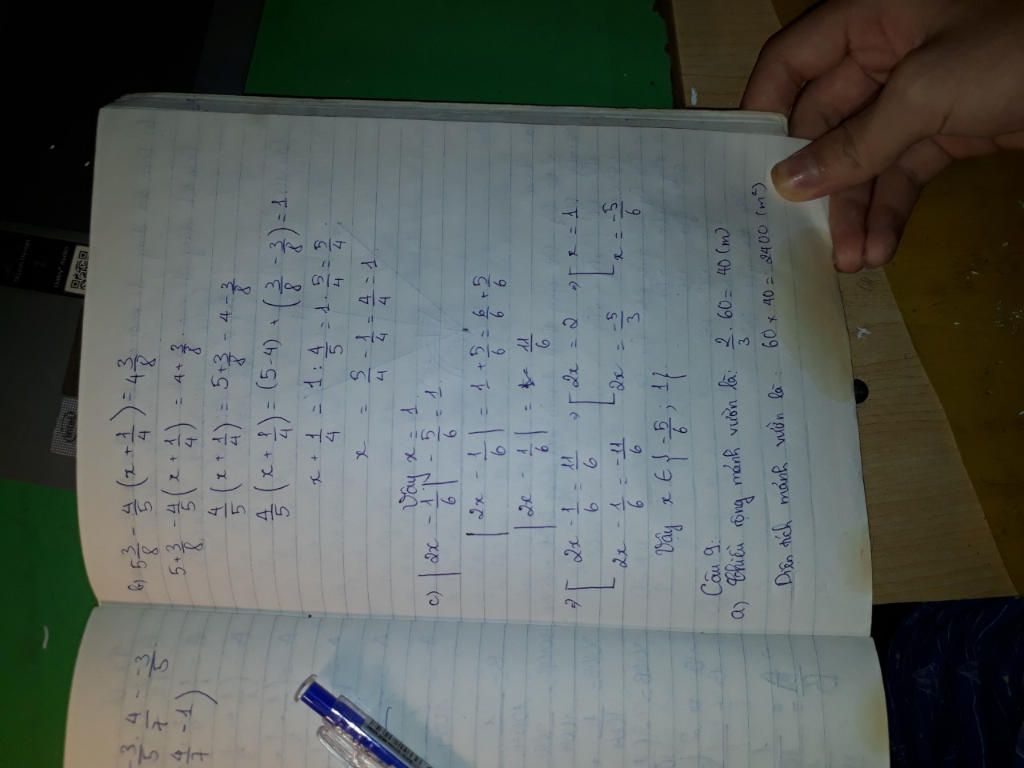 - 3/5 . 4/7 - -3/5
4/7 - 1)
b) 5 3/8 - 4/5 (x + 1/4) = 4 3/8
5 + 3/8 - 4/5 (x + 1/4) = 4 + 3/8
4/5 (x + 1/4) = 5 + 3/8 - 4 - 3/8
4/5 (x + 1/4) = (5 - 4) + (3/8 - 3/8) = 1
x + 1/4 = 1 : 4/5 = 1 . 5/4 = 5/4
x = 5/4 - 1/4 = 4/4 = 1
Vậy x = 1
c) |2x - 1/6| - 5/6 = 1
|2x - 1/6| = 1 + 5/6 = 6/6 + 5/6
|2x - 1/6| = 11/6
=> [ 2x - 1/6 = 11/6 => [ 2x = 2 => [ x = 1
2x - 1/6 = -11/6 2x = -5/3 x = -5/6
Vậy x ∈ { -5/6 ; 1 }
Câu 9:
a) Chiều rộng mảnh vườn là: 2/3 . 60 = 40 (m)
Diện tích mảnh vườn là : 60 x 40 = 2400 (m²)